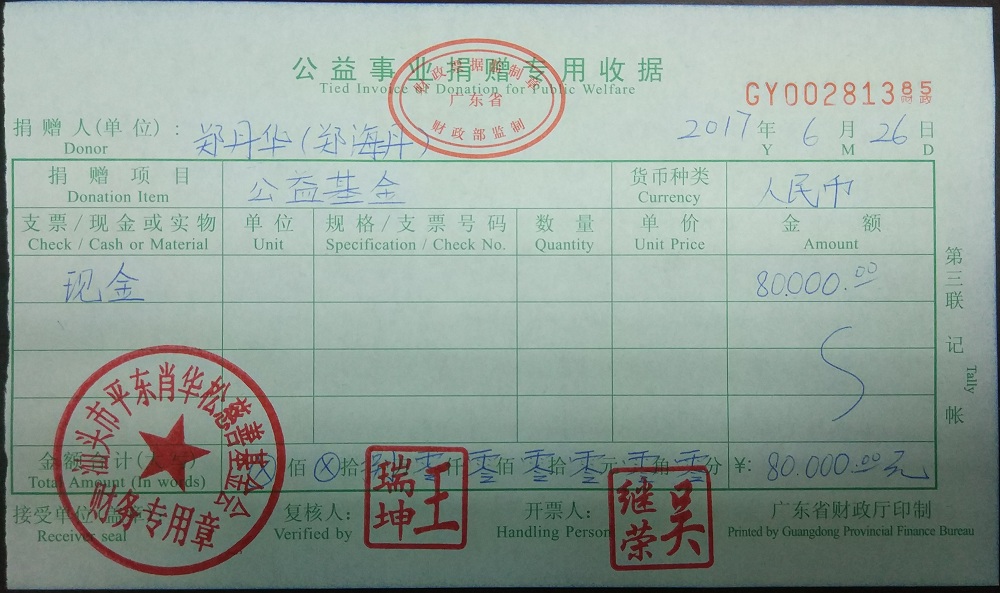 公益事业捐赠专用收据
Tied Invoice of Donation for Public Welfare
财政票据监制章
广东省
财政部监制
GY00281385
财政
捐赠人(单位): 郑丹华(郑海丹)
Donor
2017年6月26日
Y M D
捐赠项目 公益基金 货币种类 人民币
Donation Item Currency
支票/现金或实物 单位 规格/支票号码 数量 单价 金额
Check / Cash or Material Unit Specification / Check No. Quantity Unit Price Amount
现金 80.000.00
第三联 记帐
Tally
金额合计(大写) 佰 拾 零仟零佰零拾零元零角零分 ¥: 80.000.00元
Total Amount (In words)
接受单位 复核人: 开票人: 广东省财政厅印制
Receiver seal Verified by Handling Person Printed by Guangdong Provincial Finance Bureau
汕头市平东肖华松慈善基金会
财务专用章
王瑞坤
吴继荣